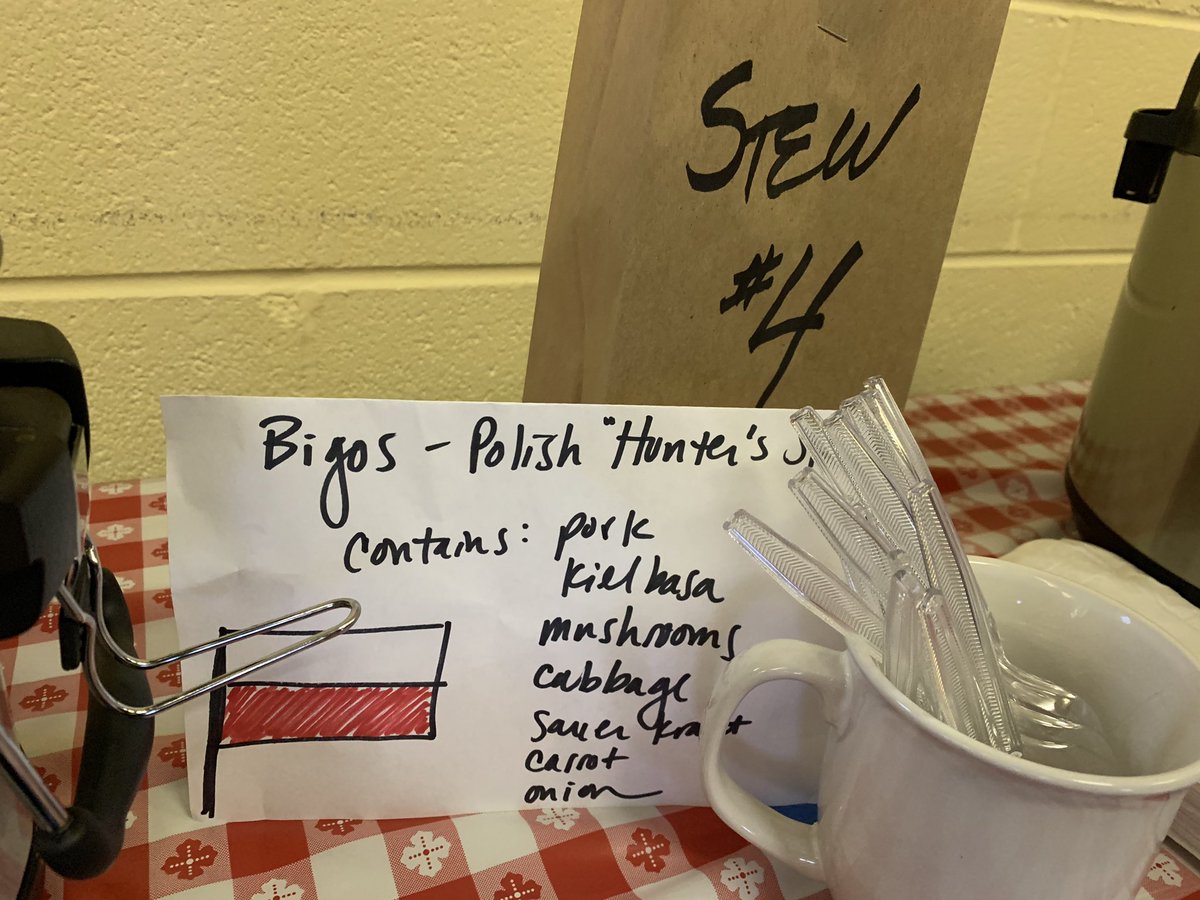 STEW
#4
Bigos - Polish "Hunter's
contains: pork
kielbasa
mushrooms
cabbage
Sauer kraut
carrot
onion